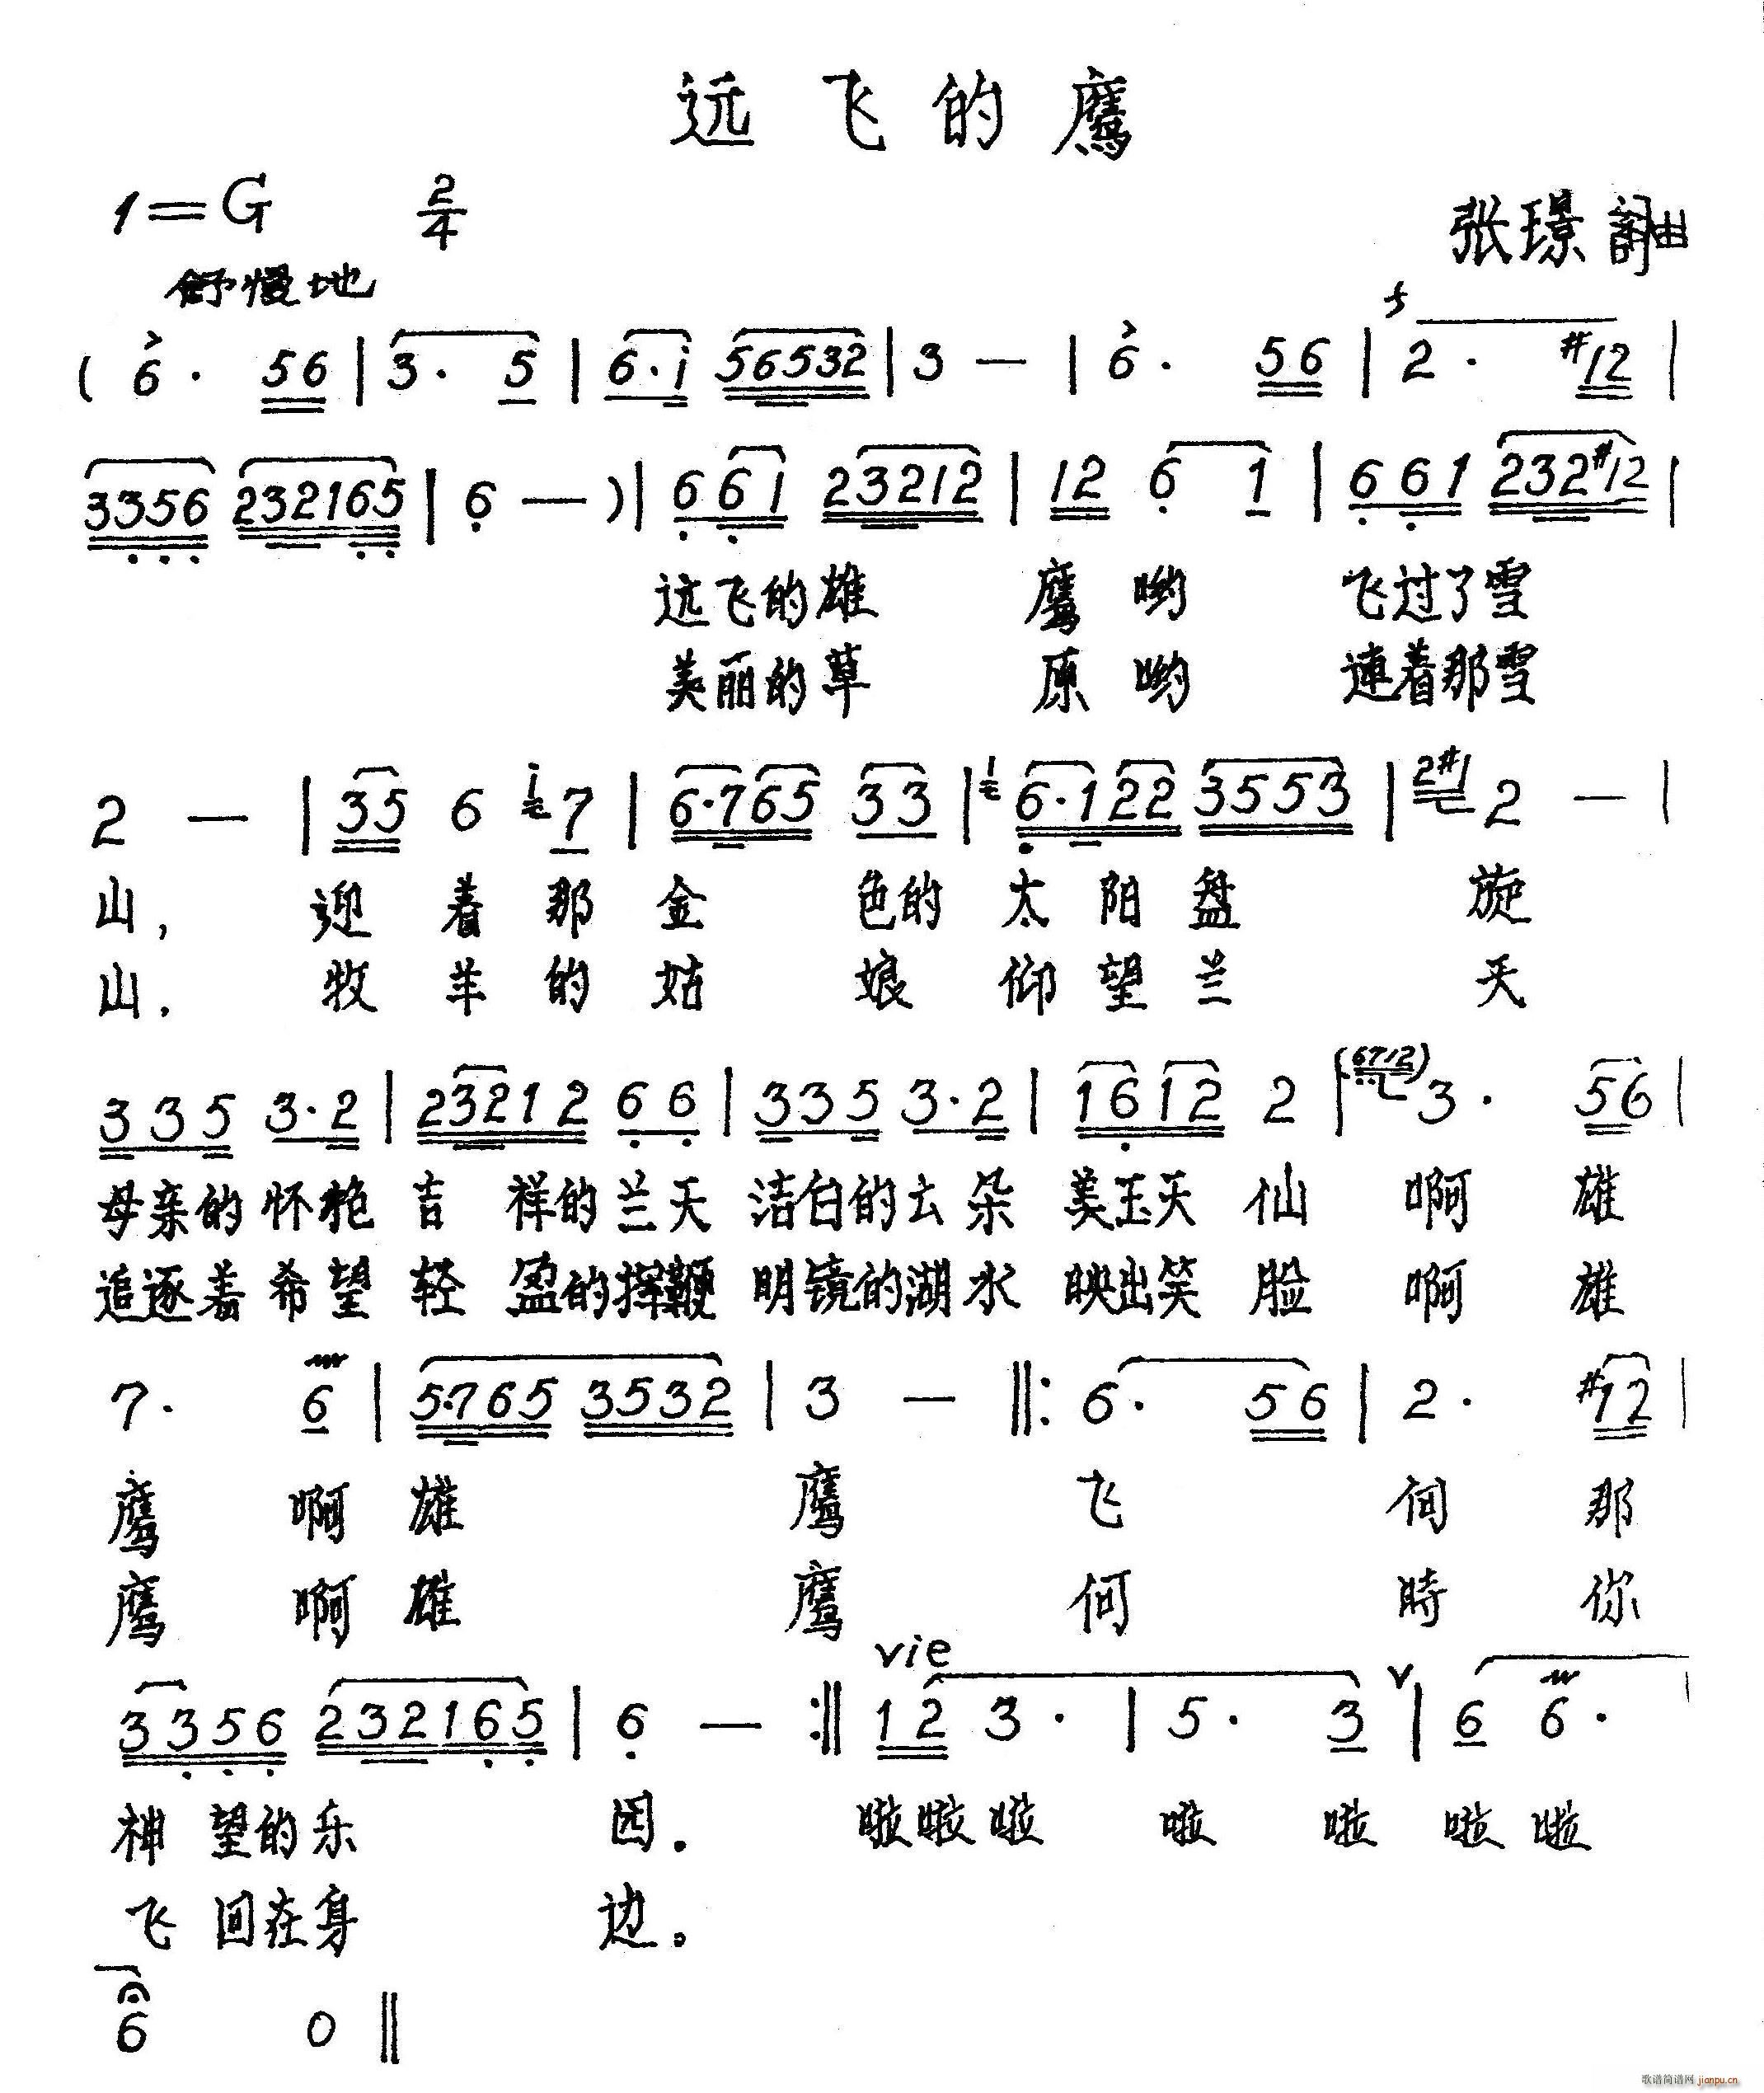 远飞的鹰
1=G 2/4
张璟 詞曲
舒慢地
( 6· 56 | 3· 5 | 6·i 56532 | 3 — | 6· 56 | 5 2· #12 |
3356 232165 | 6 — ) | 661 23212 | 12 6 1 | 661 232#12 |
远飞的雄 鹰 哟 飞过了雪
美丽的草 原 哟 連着那雪
2 — | 35 6 i 7 | 6·765 33 | 1 6·122 3553 | 2#1 2 — |
山, 迎 着 那 金 色的 太 阳 盘 旋
山. 牧 羊 的 姑 娘 仰 望 兰 天
335 3·2 | 23212 66 | 335 3·2 | 1612 2 | (6712) 3· 56 |
母亲的怀抱 吉 祥的兰天 洁白的云朵 美玉天 仙 啊 雄
追逐着希望 轻 盈的挥鞭 明镜的湖水 映出笑 脸 啊 雄
7· 6 | 5·765 3532 | 3 — ‖: 6· 56 | 2· #12 |
鹰 啊 雄 鹰 飞 向 那
鹰 啊 雄 鹰 何 時 你
vie
3356 232165 | 6 — :‖ 12 3· | 5· 3 V | 6 6· |
神 望的乐 园. 啦啦啦 啦 啦 啦 啦
飞 回在身 边。
6 0 ‖
歌谱简谱网 jianpu.cn